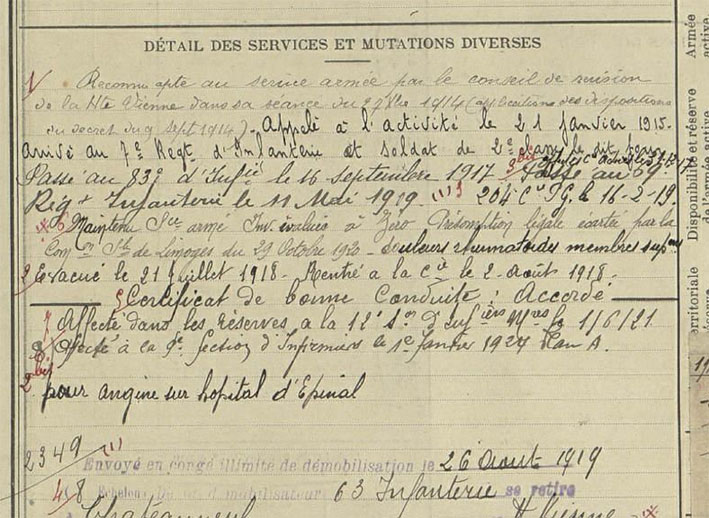 DÉTAIL DES SERVICES ET MUTATIONS DIVERSES
Reconnu apte au service armée par le conseil de revision
de la Hte Vienne dans sa séance du 1914 (applications des dispositions
du decret du 9 sept 1914). Appelé à l'activité le 21 janvier 1915.
arrivé au 7e Regt d'Infanterie et soldat de 2e classe le dit jour
Passé au 83e d'Infie le 16 Septembre 1917 3 bis Passé au 69e
Regt Infanterie le 11 Mai 1919. (1) 3 204 Cie PG. le 16-2-19.
6 Maintenu Sce armé Inv. évaluée à Zéro Présomption légale écartée par la
Com on de Limoges du 29 Octobre 1920 - douleurs rhumatoides membres supres
2 Evacué le 21 Juillet 1918 - Rentré a la Cie le 2 août 1918.
5 Certificat de bonne Conduite : Accordé
7 Affecté dans les Réserves a la 12e Son d'Infiers Mres le 1/6/21
8 Affecté à la 9e section d'Infirmiers le 1er janvier 1927 Plan A.
2 bis pour angine sur hopital d'Epinal
2349 (1)
Envoyé en congé illimité de démobilisation le 26 Aout 1919
4 (8 Echelon Dépot démobilisateur 63 Infanterie se retire
Chateauneuf Hte Vienne
Armée
active.
Disponibilité et réserve
de l'armée active.
territoriale